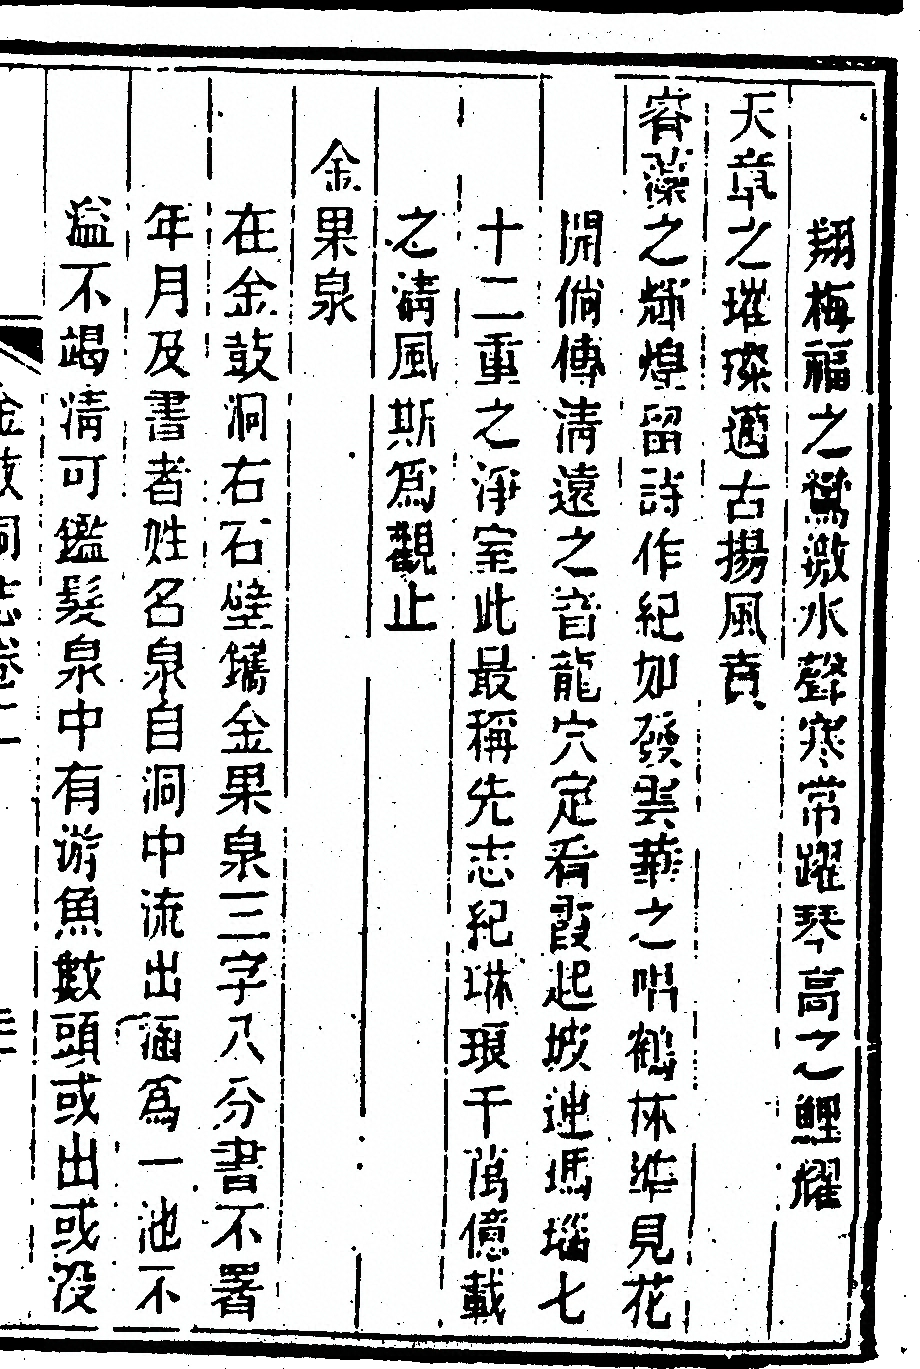 翔梅福之鸞激水聲寒常躍琴高之鯉耀
天章之璀璨邁古揚風賁
睿藻之輝煌留詩作紀如發雲華之唱鶴林準見花
開倘傳清遠之音龍穴定看霞起坡連瑪瑙七
十二重之淨室此最稱先志紀琳琅千萬億載
之清風斯爲觀止
金果泉
在金鼓洞右石壁鐫金果泉三字八分書不署
年月及書者姓名泉自洞中流出涵爲一池不
溢不竭清可鑑髮泉中有游魚數頭或出或没
金鼓洞志卷二